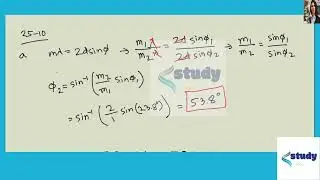 25-10
a mλ = 2dsinϕ → m₁λ/m₂λ = 2dsinϕ₁/2dsinϕ₂ → m₁/m₂ = sinϕ₁/sinϕ₂
ϕ₂ = sin⁻¹(m₂/m₁ sinϕ₁)
= sin⁻¹(2/1 sin(23.8°)) = 53.8°
study
study